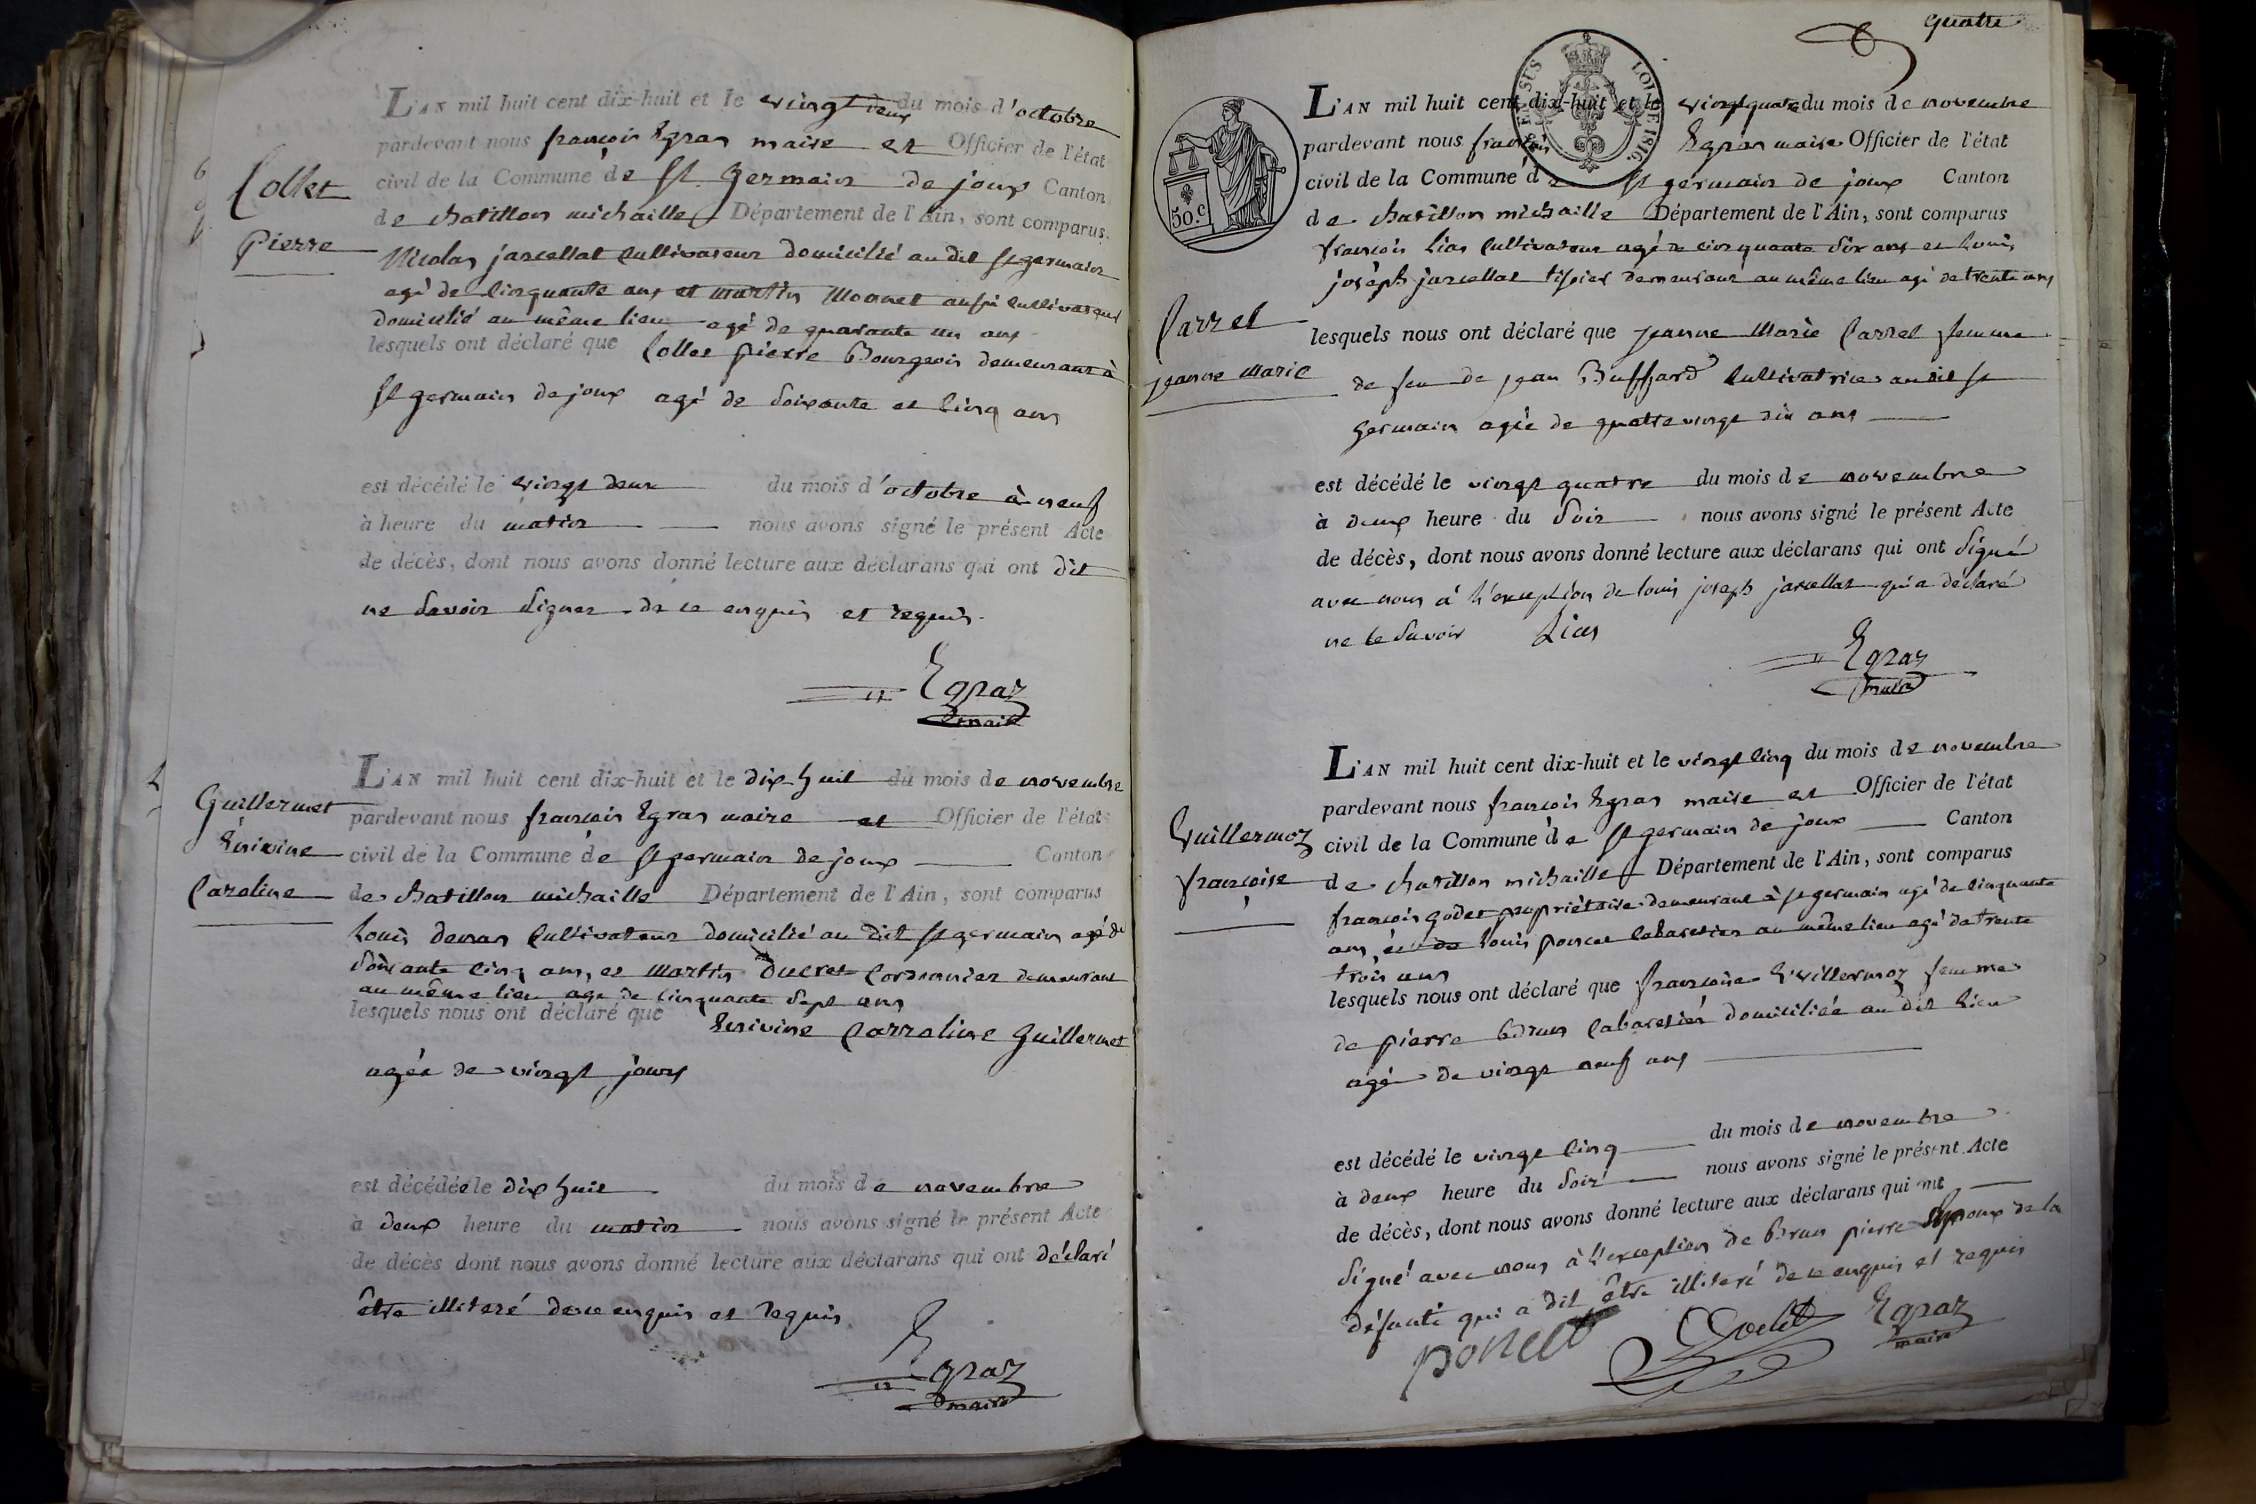 L'AN mil huit cent dix-huit et le vingt deux du mois d'octobre
pardevant nous françois Egraz maire et Officier de l'état
civil de la Commune de St. Germain de joux Canton
de chatillon michaille Département de l'Ain, sont comparus
Collet
Pierre
Nicolas jarcellat Cultivateur domicilié au dit St germain
agé de Cinquante ans et martin Monnet aussi Cultivateur
domicilié au même lieu agé de quarante un ans
lesquels ont déclaré que Collet pierre Bourgeois demeurant à
St germain de joux agé de Soixante et Cinq ans
est décédé le vingt deux du mois d'octobre à neuf
à heure du matin nous avons signé le présent Acte
de décès, dont nous avons donné lecture aux déclarans qui ont dit
ne Savoir Signer de ce enquis et requis.
Egraz
maire
L'AN mil huit cent dix-huit et le dix huit du mois de novembre
Guillermet
Caroline
pardevant nous françois Egraz maire et Officier de l'état
civil de la Commune de St germain de joux Canton
de chatillon michaille Département de l'Ain, sont comparus
Louis Cultivateur domicilié au dit St germain agé de
Soixante Cinq ans, et Martin Ducret Cordonnier demeurant
au même lieu agé de Cinquante Sept ans
lesquels nous ont déclaré que Carroline Guillermet
agée de vingt jours
est décédée le dix huit du mois de novembre
à deux heure du matin nous avons signé le présent Acte
de décès dont nous avons donné lecture aux déclarans qui ont déclaré
être illiteré de ce enquis et requis
Egraz
maire
quatre
LOI DE 1816.
50.c
L'AN mil huit cent dix-huit et le vingt quatre du mois de novembre
pardevant nous françois Egraz maire Officier de l'état
civil de la Commune de St germain de joux Canton
de chatillon michaille Département de l'Ain, sont comparus
françois Lias Cultivateur agé de cinquante Six ans et Louis
joseph jarcellat tissier demeurant au même lieu agé de trente ans
Carrel
jeanne Marie
lesquels nous ont déclaré que jeanne Marie Carrel femme
de feu de jean Buffard Cultivatrice audit St
Germain agée de quatre vingt dix ans
est décédé le vingt quatre du mois de novembre
à deux heure du Soir nous avons signé le présent Acte
de décès, dont nous avons donné lecture aux déclarans qui ont Signé
avec nous à L'exception de Louis joseph jarcellat qui a déclaré
ne le Savoir Lias
Egraz
maire
L'AN mil huit cent dix-huit et le vingt Cinq du mois de novembre
pardevant nous françois Egraz maire et Officier de l'état
Guillermoz
françoise
civil de la Commune de St germain de joux Canton
de chatillon michaille Département de l'Ain, sont comparus
françois godet propriétaire demeurant à St germain agé de Cinquante
ans, et Louis poncet Cabaretier au même lieu agé de trente
trois ans
lesquels nous ont déclaré que françoise Guillermoz femme
de pierre Brun Cabaretier domiciliée au dit Lieu
agée de vingt neuf ans
est décédé le vingt Cinq du mois de novembre
à deux heure du Soir nous avons signé le présent Acte
de décès, dont nous avons donné lecture aux déclarans qui ont
Signé avec nous à L'exception de Brun pierre Epoux de la
défunte qui a dit être illiteré de ce enquis et requis
poncet Godet Egraz
maire